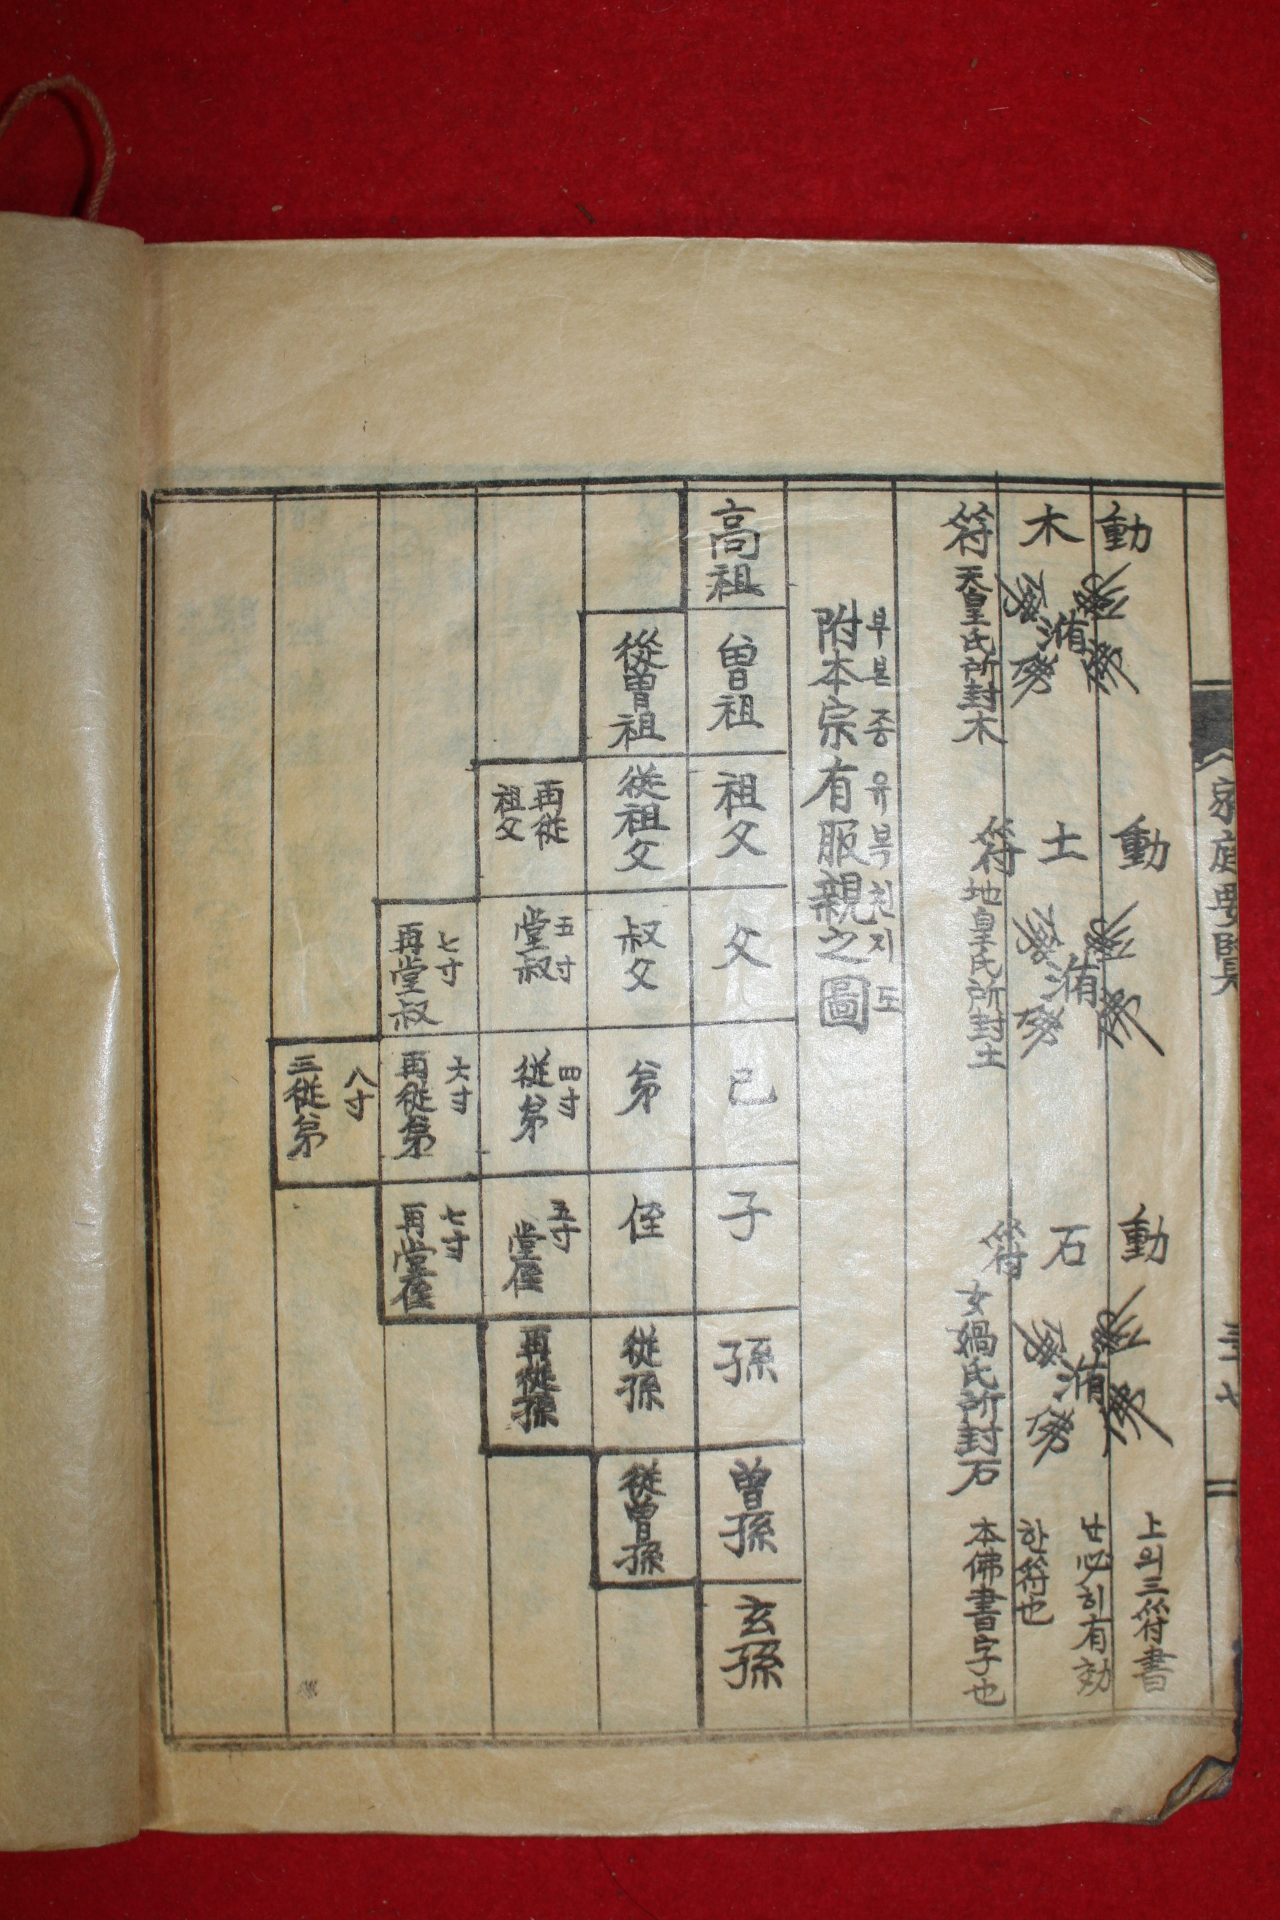 家庭要覽
三七
動木符
洧
天皇氏所封木
動土符
洧
地皇氏所封土
動石符
洧
女媧氏所封石
上의三符書
난必히有効
한符也
本佛書字也
부본종유복친지도
附本宗有服親之圖
高祖
曾祖
祖父
父
己
子
孫
曾孫
玄孫
從曾祖
從祖父
叔父
弟
侄
從孫
從曾孫
再從
祖父
五寸
堂叔
四寸
從弟
五寸
堂侄
再從孫
七寸
再堂叔
六寸
再從弟
七寸
再堂侄
八寸
三從弟